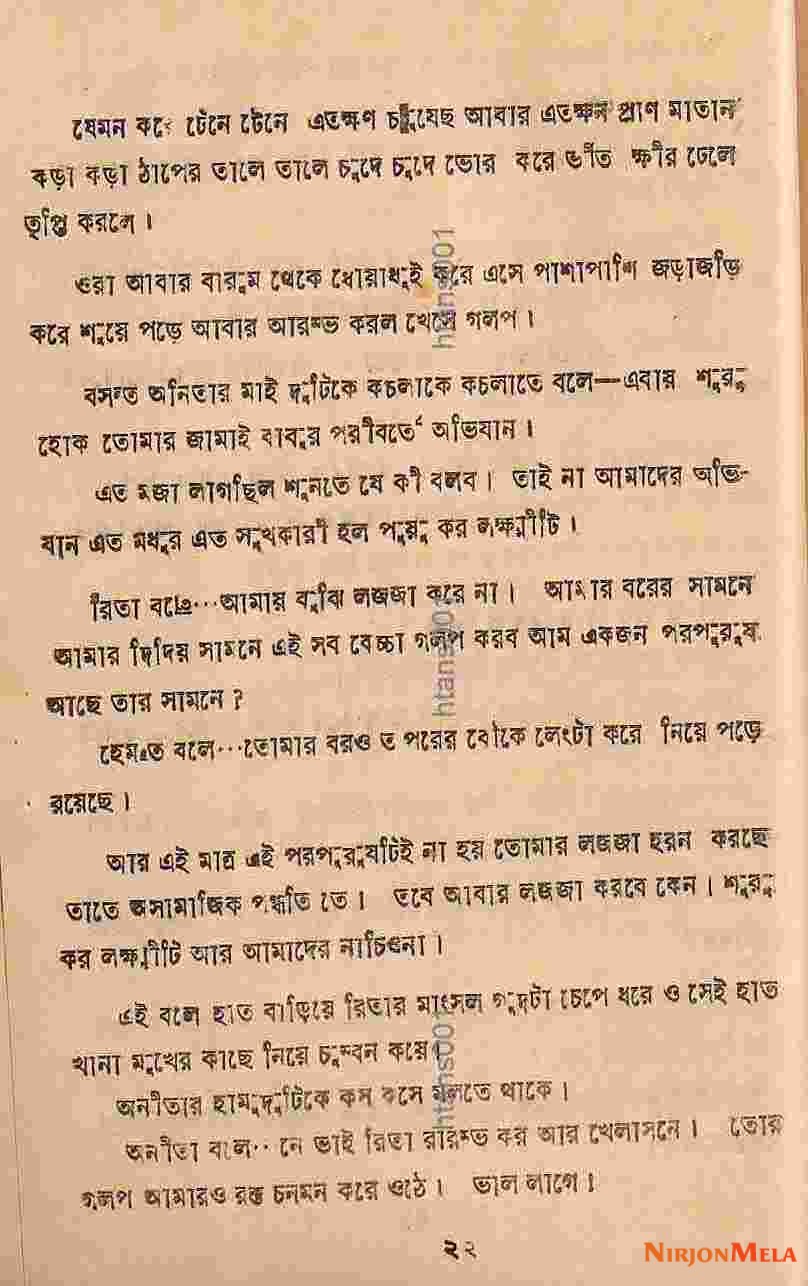 যেমন করে টেনে টেনে এতক্ষণ আবার এতক্ষন প্রাণ মাতান
কড়া কড়া ঠাপের তালে তালে চুদে চুদে ভোর করে ক্ষীর ঢেলে
তৃপ্তি করলে।
ওরা আবার বারুম থেকে ধোয়াধুই করে এসে পাশাপাশি জড়াজড়ি
করে শুয়ে পড়ে আবার আরম্ভ করল খোস গলপ।
বসন্ত অনিতার মাই দুটিকে কচলাকে কচলাতে বলে—এবার শুরু
হোক তোমার জামাই বাবুর পরবীর্তে অভিযান।
এত মজা লাগছিল শুনতে যে কী বলব। তাই না আমাদের অভি-
যান এত মধুর এত সুখকারী হল কর লক্ষ্মীটি।
রিতা বলে···আমায় বুঝি লজ্জা করে না। আমার বরের সামনে
আমার দিদিয় সামনে এই সব বেচ্চা গলপ করব আম একজন পরপুরুষ
আছে তার সামনে?
হেমন্ত বলে···তোমার বরও ত পরের বৌকে লেংটা করে নিয়ে পড়ে
রয়েছে।
আর এই মাত্র এই পরপুরুষটিই না হয় তোমার লজ্জা হরন করছে
তাতে অসামাজিক পদ্ধতি তে। তবে আবার লজ্জা করবে কেন। শুরু
কর লক্ষ্মীটি আর আমাদের নাচিওনা।
এই বলে হাত বাড়িয়ে রিতার মাংসল গুদটা চেপে ধরে ও সেই হাত
খানা মুখের কাছে নিয়ে চুম্বন করে।
অনীতার কস কসে মলতে থাকে।
অনীতা বলে·· নে ভাই রিতা রারম্ভ কর আর খেলাসনে। তোর
গলপ আমারও রক্ত চনমন করে ওঠে। ভাল লাগে।
২২
NIRJONMELA
htans001
htans001
htans001